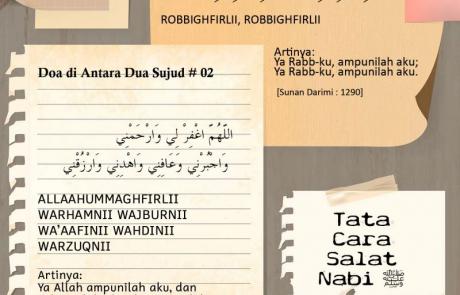 ROBBIGHFIRLII, ROBBIGHFIRLII
Artinya:
Ya Rabb-ku, ampunilah aku;
Ya Rabb-ku, ampunilah aku.
[Sunan Darimi : 1290]
Doa di Antara Dua Sujud # 02
اللَّهُمَّ اغْفِرْ لِي وَارْحَمْنِي
وَاجْبُرْنِي وَعَافِنِي وَاهْدِنِي وَارْزُقْنِي
ALLAAHUMMAGHFIRLII
WARHAMNII WAJBURNII
WA'AAFINII WAHDINII
WARZUQNII
Artinya:
Ya Allah ampunilah aku, dan
Tata
Cara
Salat
Nabi ﷺ